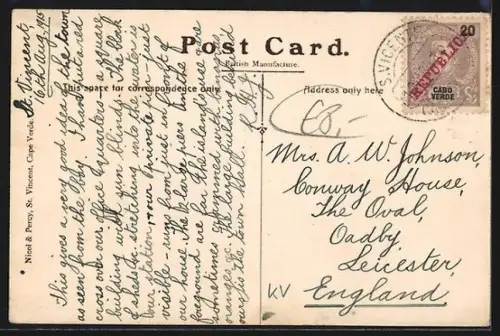 Post Card.
British Manufacture.
This space for correspondence only.
Address only here
Nicol & Percy, St. Vincent, Cape Verde.
St. Vincent,
16th Aug, 1915
This gives a very good idea of the town
as seen from the Bay. I have put a red
cross over our Office & quarters - a square
building with sun blinds. The black
& steps stretching into the water is
our station & our private pier just
visible - runs from just in front of
our house. The place piers in the
foreground are for the island boats
sometimes crammed with bananas,
oranges &c. The large building behind
ours is the town hall.
S. VICENTE
20
REPUBLICA
CABO
VERDE
£8,-
Mrs. A. W. Johnson,
Conway House,
The Oval,
Oadby
Leicester,
England
KV